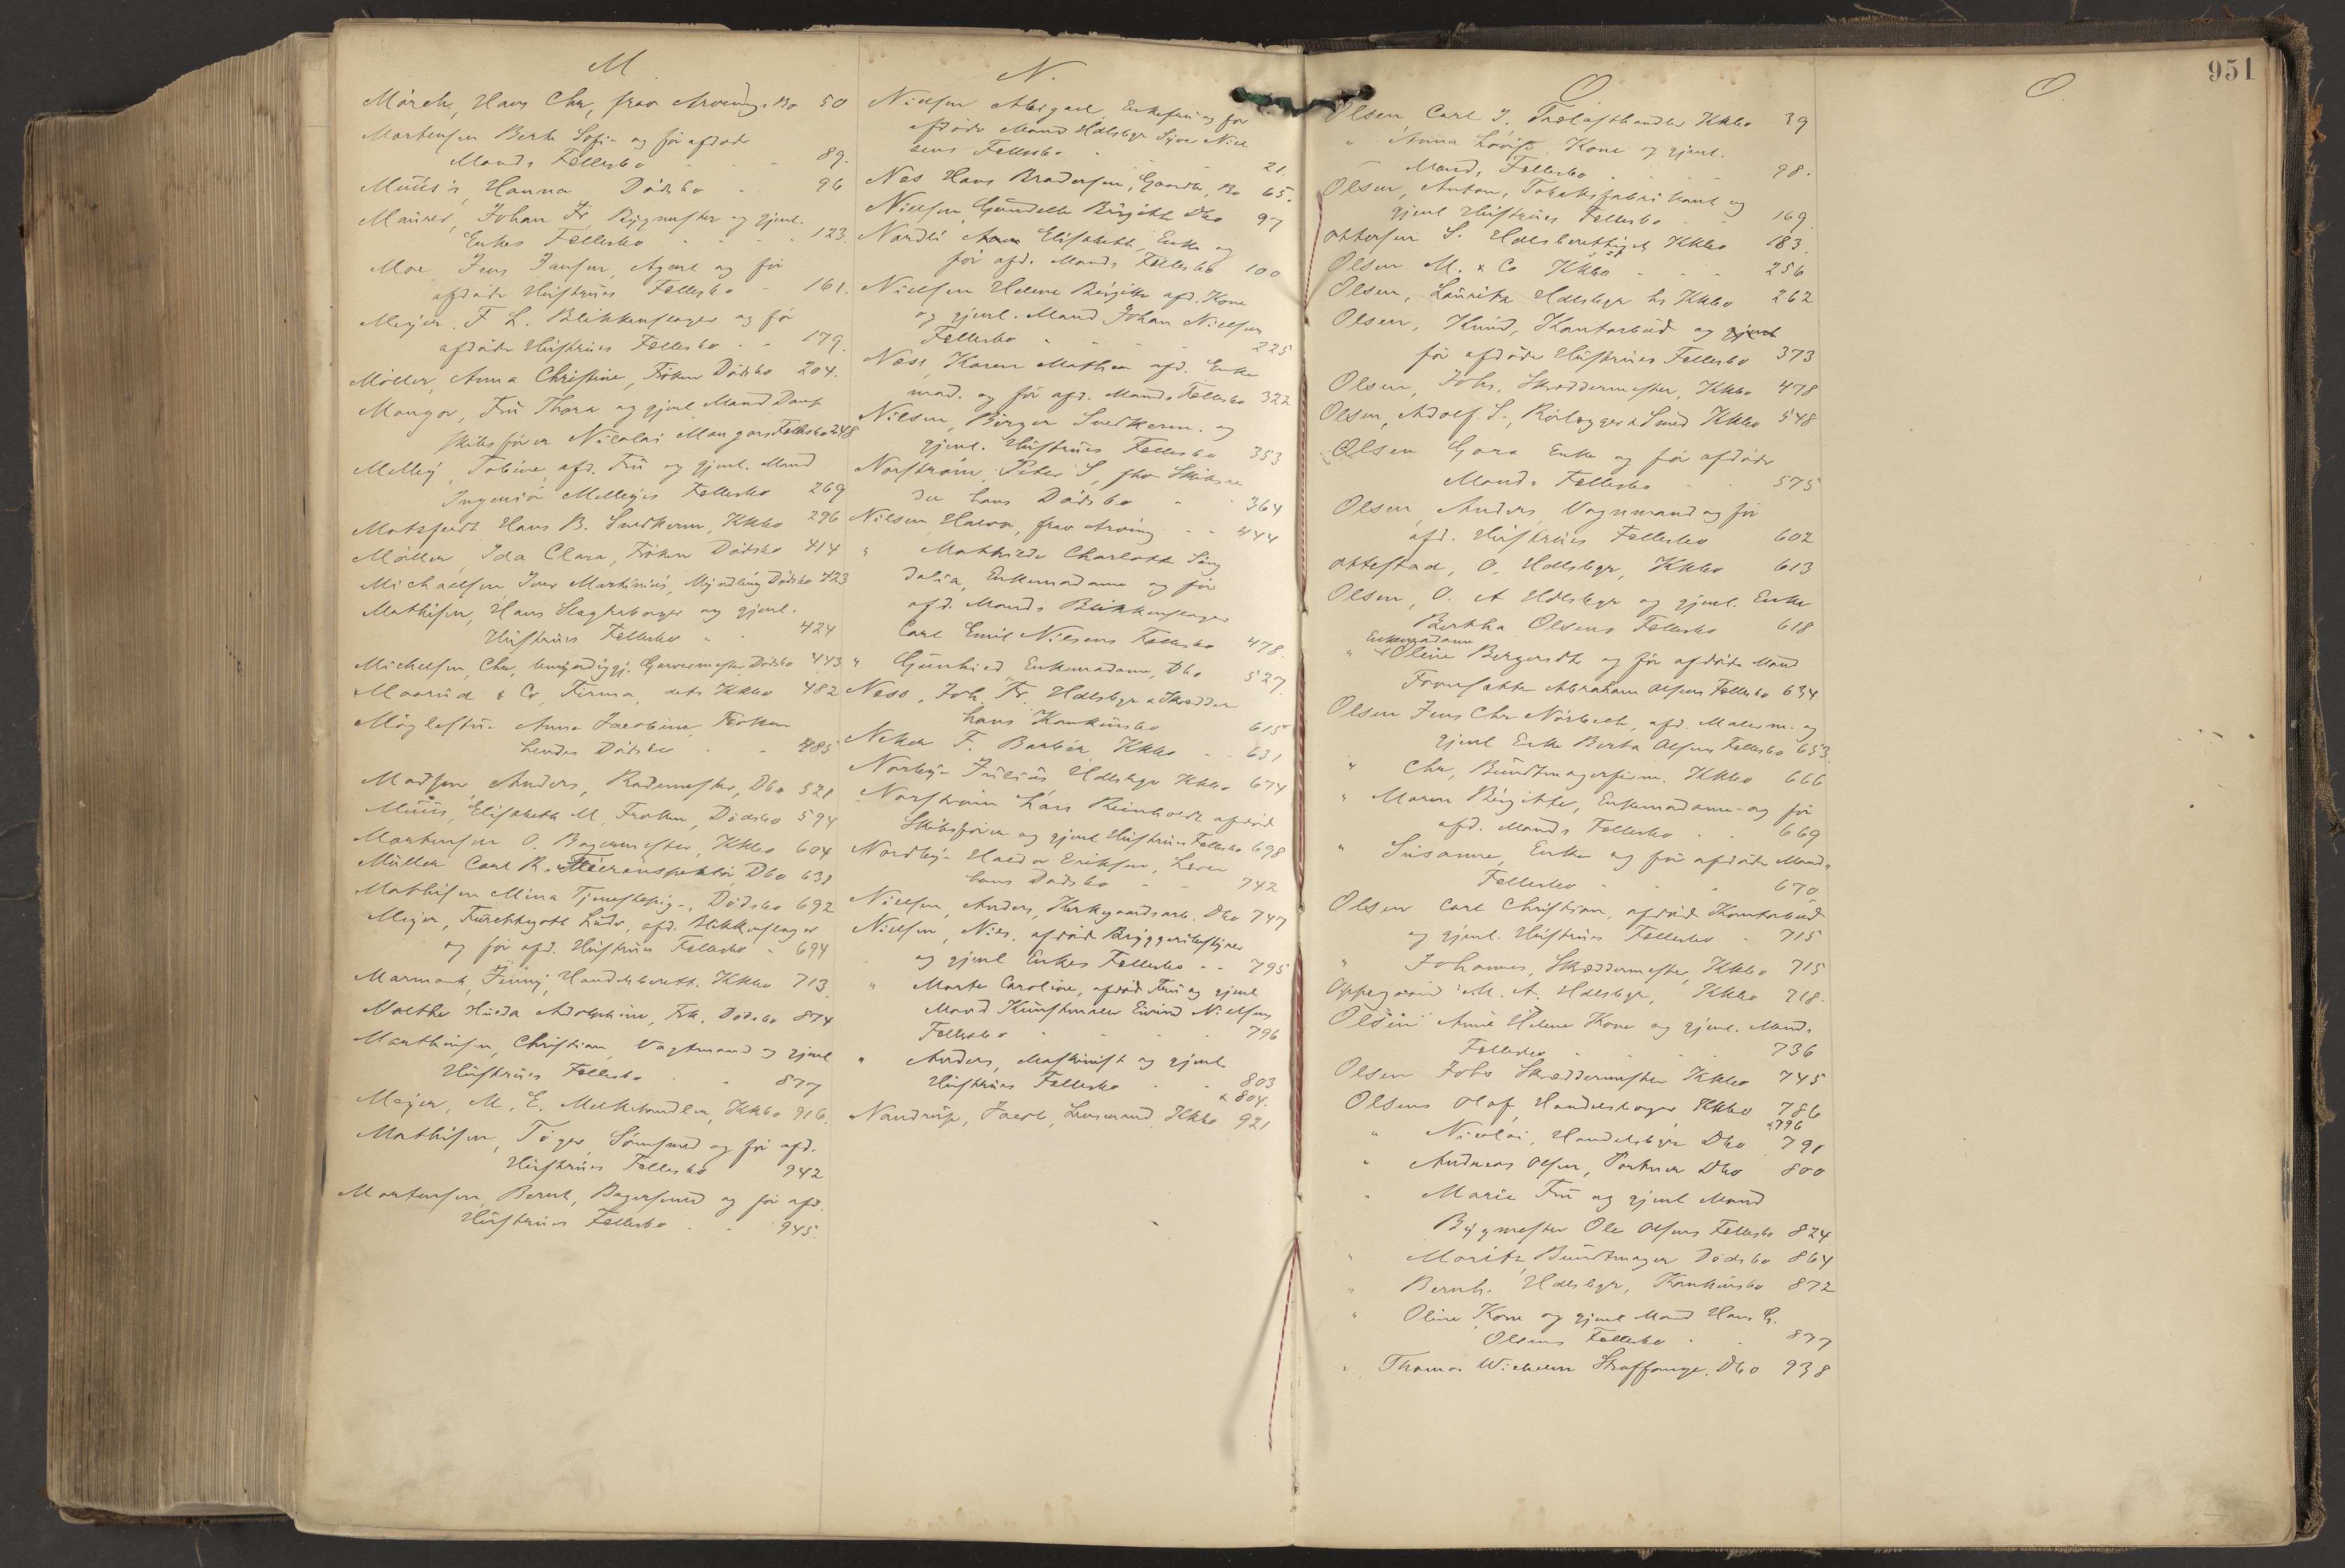 M
Mörch, Hans Chr, frav Arvings Bo 50
Mortensen Berte Sofie og før afdøde
Mands Fællesbo - - - 89.
Müüs's, Hanna Dödsbo - 96
Maurer, Johan Fr. Bygmester og gjenl.
Enkes Fællesbo - - - 123.
Moe, Jens Jansen, Agent og før
afdøde Hüstrües Fællesbo - 161.
Meyer, F. L. Blikkenslager og før
afdøde Hüstrües Fællesbo - - 179.
Möller, Anna Christine, Fröken Dödsbo 204.
Mangor, Frü Thora og gjenl. Mand Damp
skibsfører Nicolai Mangors Fællesbo 248
Melleÿ, Tobine, afd. Frü og gjenl. Mand
Ingeniör Melleÿes Fællesbo 269
Matzfeldt Hans B. Snedkerm, Kkbo 296
Möller, Ida Clara, Fröken Dödsbo 414
Michaelsen Iver Martinius, Myndling Dödsbo 423
Mathisen, Hans Slagteborger og gjenl.
Hüstrües Fællesbo - - 424
Michelsen, Chr, umyndiggj. Garvermester Dödsbo 443
Maarud & Co, Firma, dets Kkbo 482
Möglestü- Anna Jacobine, Fröken
hendes Dödsbo - - 485
Madsen, Anders, Rodemester, Dbo 521
Müüs, Elisabeth M, Frøken, Dödsbo 594
Mortensen O. Bagermester, Kkbo 604
Müller Carl R. Dbo 631
Mathisen Mina Tjenestepige, Dödsbo 692
Meyer, Fürchtegott Lüdv, afd. Blikkenslager
og før afd. Hüstrües Fællesbo - 694
Marmark, Jenny, Handelsberett. Kkbo 713
Malthe Hilda Adolphine, Frk. Dödsbo 874
Marthinsen, Christian, Vagtmand og gjenl
Hüstrües Fællesbo - - 877
Meyer, M. E. Melkehandler, Kkbo 916.
Mathisen, Töger, Sömsmed og før afd.
Hüstrües Fællesbo 942
Mortensen Bernt, Bagersvend og før afd.
Hüstrües Fællesbo - - 945.
N.
Nielsen Abigael Enkefrü og før
afdøde Mand Hdlsbgr Syver Niel
sens Fællesbo - - - 21.
Næs Hans Bradersen, Gaardbr, Bo 65.
Nielsen, Gündelle Birgitte Dbo 97
Nordli Elisabeth, Enke og
før afd. Mands Fællesbo 100
Nielsen Helene Birgitte afd. Kone
og gjenl. Mand Johan Nielsens
Fællesbo - - - 225
Næss, Karen Mathea afd. Enke
mad. og før afd. Mands Fællesbo 322
Nilsen, Birger Snedkerm. og
gjenl. Hüstrües Fællesbo 353
Norström, Peter S, fhv Skibsre
der hans Dödsbo - - 364
Nilsen, Halvor, frav Arving - - 444
" Mathilde Charlotte Sing
dalia, Enkemadame og før
afd. Mands Blikkenslager
Carl Emil Nilsens Fællesbo 478.
" Günhild, Enkemadame, Dbo 527.
Næss, Joh. Fr. Hdlsbgr & Skrædder
hans Konkürsbo 615
Neker F. Barbér Kkbo - - 631
Norbÿ- Jülius Hdlsbgr Kkbo 674
Norström Lars Reinholdt afdød
Skibsfører og gjenl Hüstrües Fællesbo 698
Nordbÿ- Halvor Eriksen, Lærer
hans Dödsbo - - 742
Nielsen, Anders, Kirkegaardsarb. Dbo 747
Nielsen, Nils, afdød Brÿggeribestÿrer
og gjenl Enkes Fællesbo - - 795
" Marte Caroline, afdød Frü og gjenl
Mand Künstmaler Eivind Nielsens
Fællesbo - - - 796
" Anders, Maskinist og gjenl
Hüstrües Fællesbo - - 803
& 804.
Nandrup, Jacob, Lensmand, Kkbo 921
O
Olsen Carl J. Trælasthandler Kkbo 39
" Anna Lovise Kone og gjenl.
Mands Fællesbo - - - 98.
Olsen, Anton, Tobaksfabrikant og
gjenl Hüstrües Fællesbo - - 169
Ottersen S. Handelsberettiget Kkbo 183.
Olsen M. & Co Kkbo - - - 256
Olsen, Lauritz Hdlsbgr hs Kkbo 262
Olsen, Knüd, Kontorbud og gjenl
før afdøde Hüstrües Fællesbo 373
Olsen, Johs, Skræddermester, Kkbo 478
Olsen, Adolf S., Rørlægger & Smed Kkbo 548
Olsen Gora Enke og før afdøde
Mands Fællesbo - - 575
Olsen, Anders, Vognmand og før
afd. Hüstrües Fællesbo 602
Ottestad, O, Hdlsbgr, Kkbo 613
Olsen, O. A Hdlsbgr og gjenl. Enke
Bertha Olsens Fællesbo 618
Enkemadame
" Oline Bergersdtr og før afdøde Mand
Forusætte Abraham Olsens Fællesbo 634
Olsen Jens Chr Nörbech, afd. Malerm. og
gjenl Enke Berta Olsens Fællesbo 653.
" Chr, Bündtmagerfirm. Kkbo 666
" Maren Birgitte, Enkemadame og før
afd. Mands Fællesbo - - 669
" Süsanne, Enke og før afdøde Mands
Fællesbo - - - 670
Olsen Carl Christian, afdød Kontorbud
og gjenl. Hüstrües Fællesbo - 715
" Johannes, Skræddermester, Kkbo 715
Oppegaard M. A. Hdlsbgr, Kkbo 718.
Olsen Anne Helene Kone og gjenl. Mands
Fællesbo - - - 736
Olsen Johs Skræddermester Kkbo 745
Olsens Olaf, Handelsborger Kkbo 786
& 796
" Nicolai, Handelsbgr Dbo 791
" Andreas Olsen, Portner Dbo 800
" Marie Frü og gjenl Mand
Bygmester Ole Olsens Fællesbo 824
" Moritz, Bündtmager Dödsbo 864
" Bernh. Hdlsbgr, Konkürsbo 872
" Oline Kone og gjenl Mand Hans
Olsens Fællesbo - - 877
" Thomas Wilhelm Straffange, Dbo 938
O
951